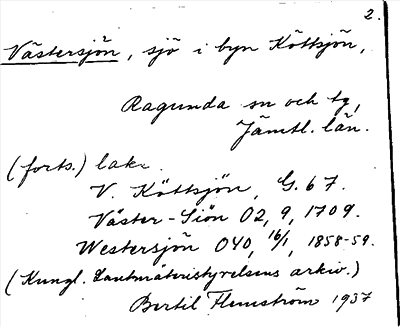 2.
Västersjön, sjö i byn Köttsjön,
Ragunda sn och tg,
Jämtl. län.
(forts.) lake
V. Köttsjön, G. 67.
Väster-Siön O2, 9, 1709.
Westersjön O40, 16/1, 1858-59.
(Kungl. Lantmäteristyrelsens arkiv.)
Bertil Flemström 1937